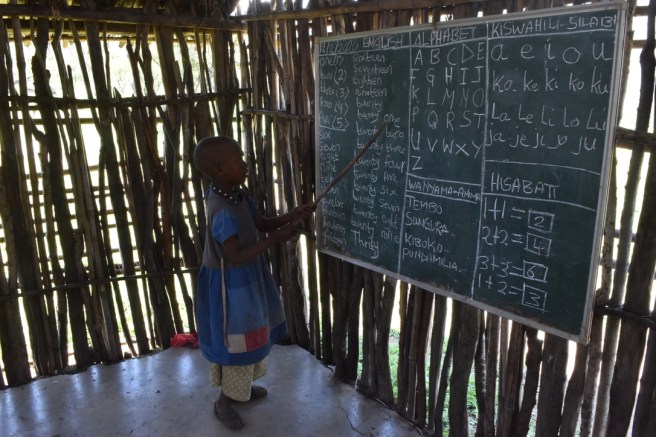 2020 ENGLISH
one (1) Sixteen
two (2) Seventeen
(3) nineteen
(4) twenty
(5) twenty one
six twenty two
seven twenty three
twenty four
twenty five
twenty six
twenty Seven
twenty nine
Thirty
ALPHABET
A B C D E
F G H I J
K L M N O
P Q R S T
U V W X Y
Z
WANYAMA
TEMBO
SUNGURA
KIBOKO
PUNDIMILIA
KISWAHILI-SILABI
a e i o u
Ka ke ki ko ku
La Le li lo Lu
Ja je ji jo ju
HISABATI
1+1=2
2+2=4
3+3=6
1+2=3